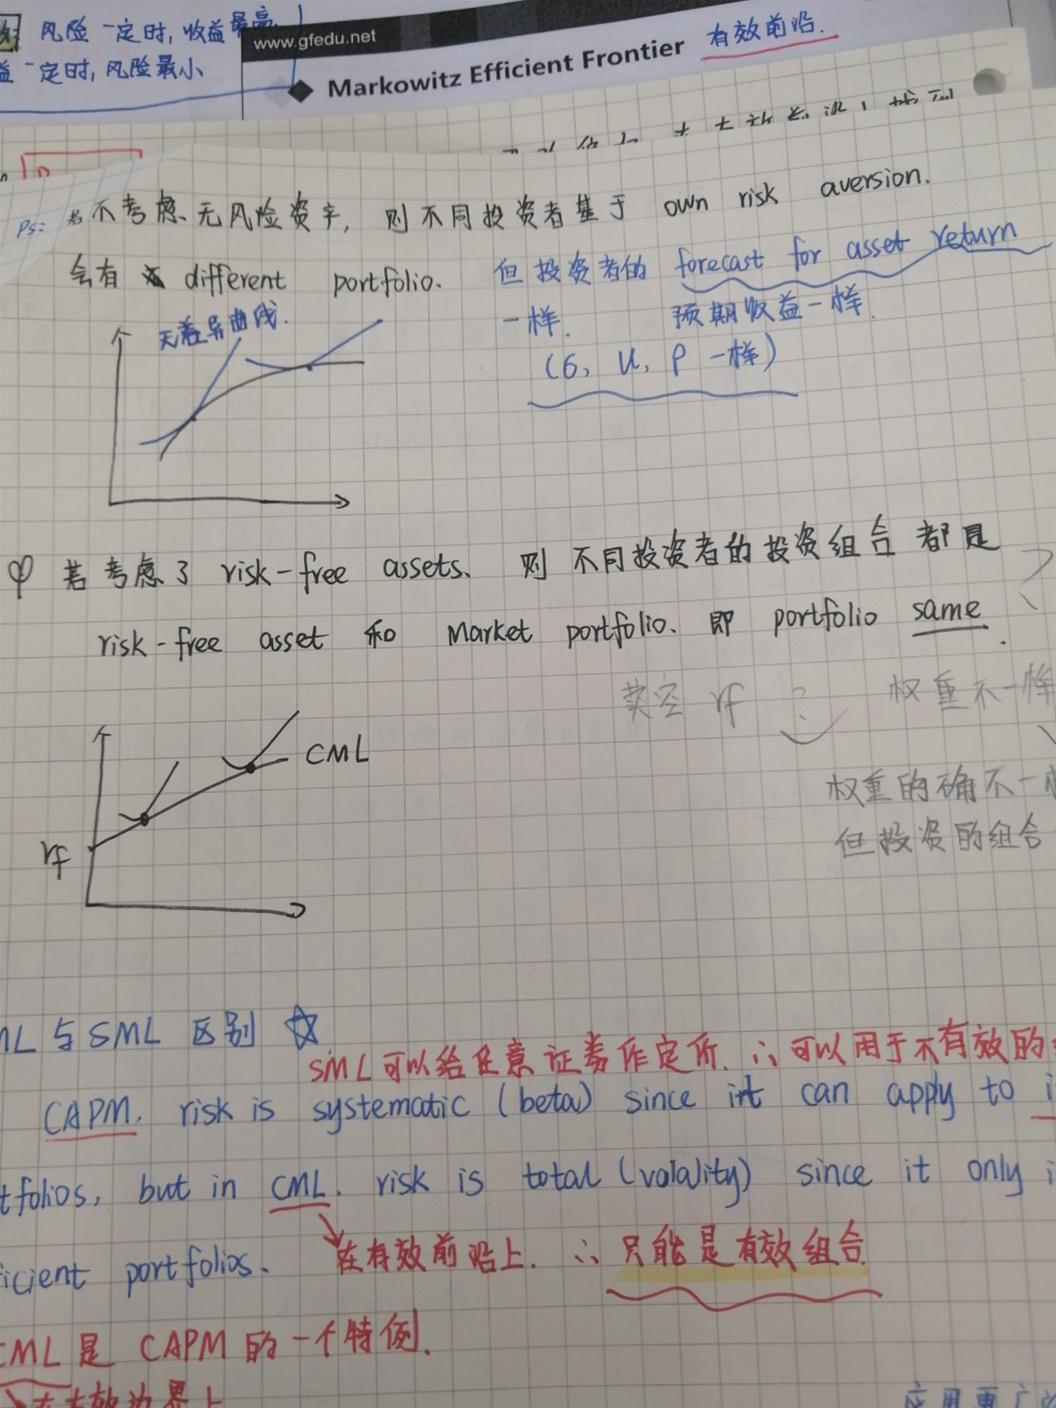 风险一定时，收益最高
益一定时，风险最小
www.gfedu.net
Markowitz Efficient Frontier 有效前沿.
Ps: 若不考虑无风险资产，则不同投资者基于 own risk aversion.
会有 different portfolio. 但投资者的 forecast for asset return
一样. 预期收益一样.
(σ, μ, ρ 一样)
无差异曲线.
若考虑了 risk-free assets、则不同投资者的投资组合都是
risk-free asset 和 Market portfolio. 即 portfolio same.
卖空 rf ? 权重不一样
CML
权重的确不一
但投资的组合
rf
ML 与 SML 区别 ☆
SML可以给任意证券作定价. ∴可以用于不有效的
CAPM. risk is systematic (beta) since it can apply to i
tfolios, but in CML. risk is total (volality) since it only i
icient portfolios. 在有效前沿上. ∴ 只能是有效组合.
CML是 CAPM 的一个特例.
应用更广